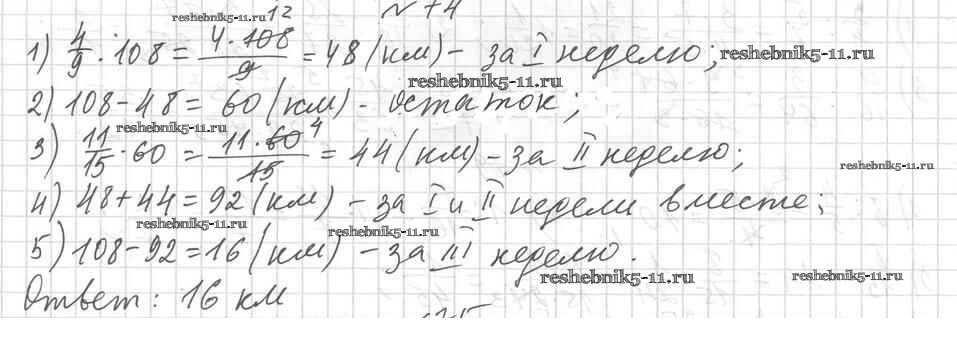 № 74
1) 4/9 · 108 = 4 · 108/9 = 48 (км) – за I неделю;
12
2) 108 – 48 = 60 (км) – остаток;
3) 11/15 · 60 = 11 · 60/15 = 44 (км) – за II неделю;
4
4) 48 + 44 = 92 (км) – за I и II недели вместе;
5) 108 – 92 = 16 (км) – за III неделю.
Ответ: 16 км
reshebnik5-11.ru
reshebnik5-11.ru
reshebnik5-11.ru
reshebnik5-11.ru
reshebnik5-11.ru
reshebnik5-11.ru
reshebnik5-11.ru
reshebnik5-11.ru
reshebnik5-11.ru